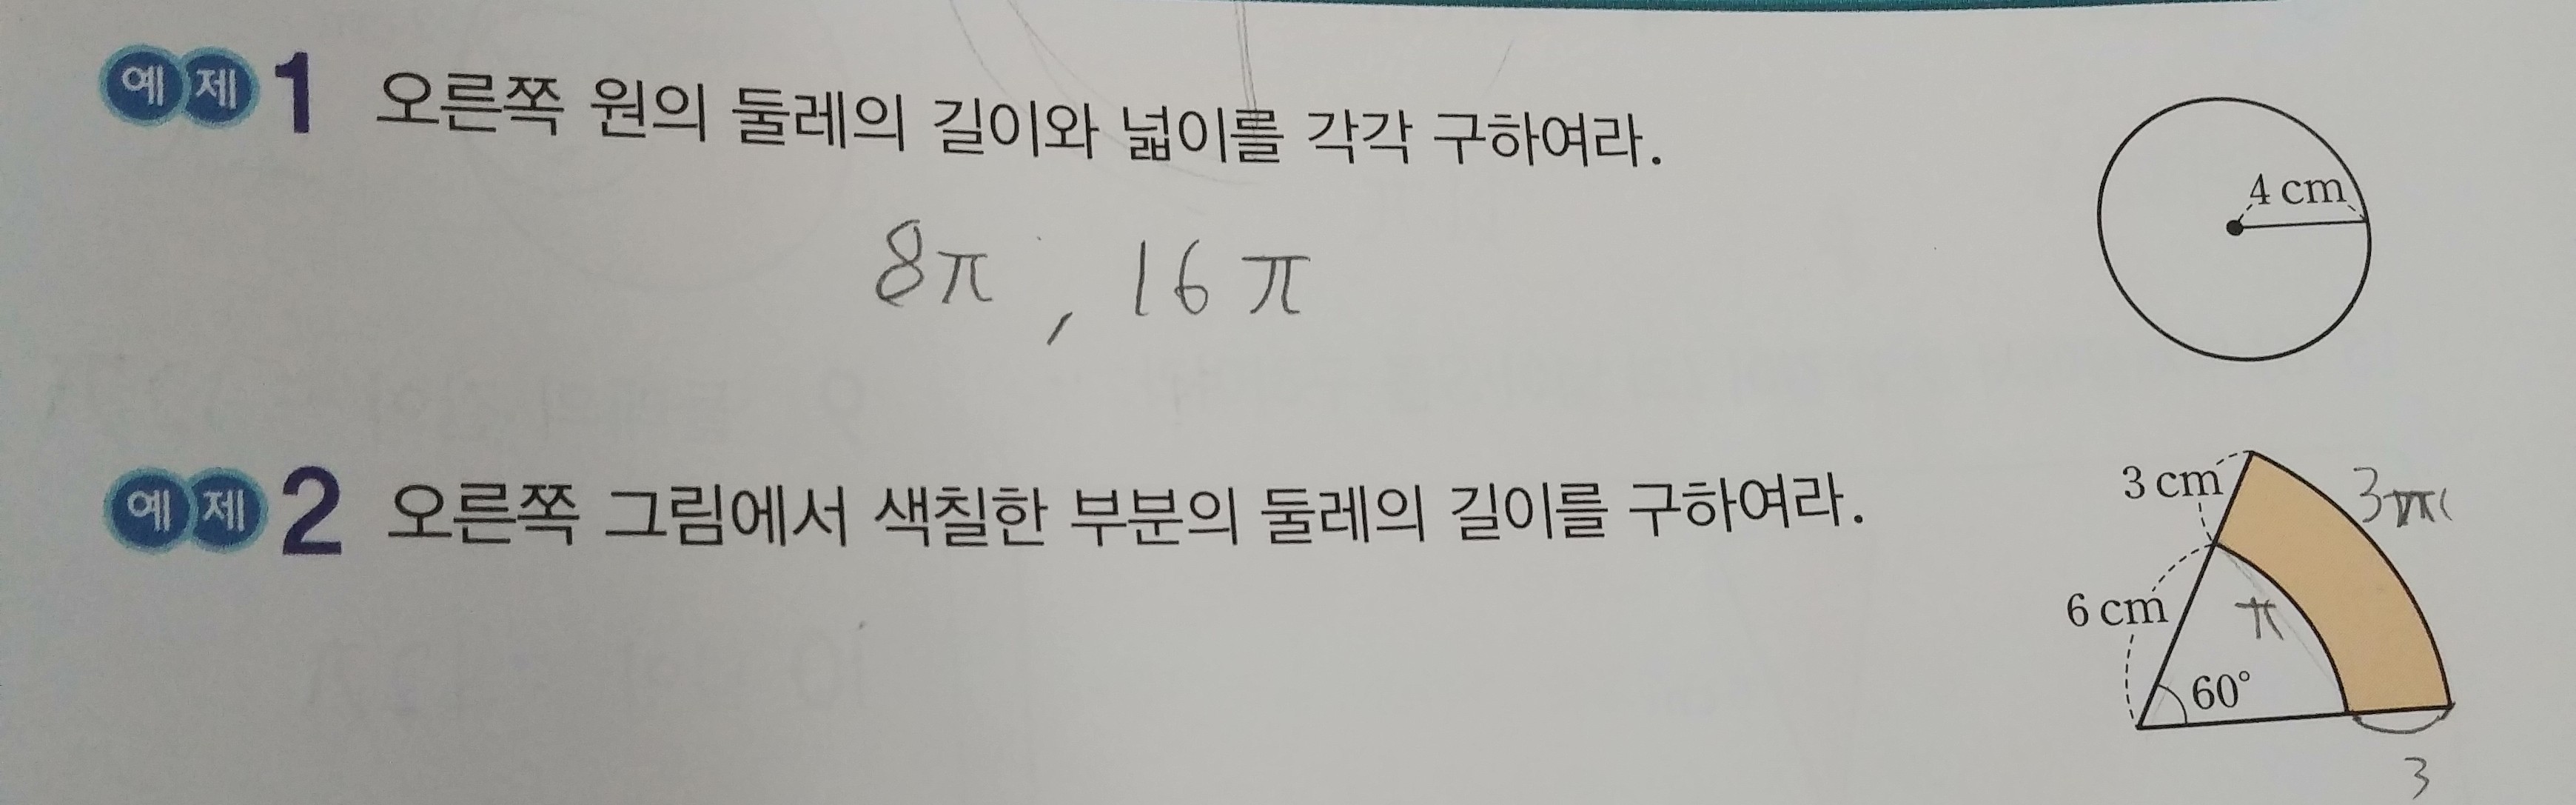 예제 1 오른쪽 원의 둘레의 길이와 넓이를 각각 구하여라.
4 cm
8π, 16π
예제 2 오른쪽 그림에서 색칠한 부분의 둘레의 길이를 구하여라.
3 cm
3π
6 cm
π
60°
3